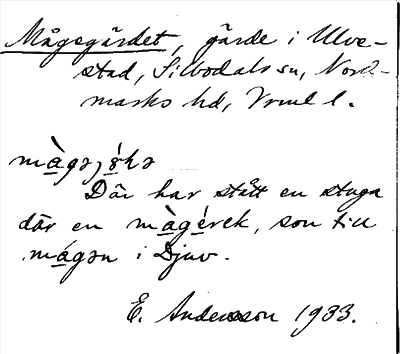 Mågsgärdet, gärde i Ulve-
stad, Silbodals sn, Nord-
marks hd, Vrml l.
Där har stått en stuga
där en màgérek, son till
mágən i Djuv.
E. Andersson 1933.